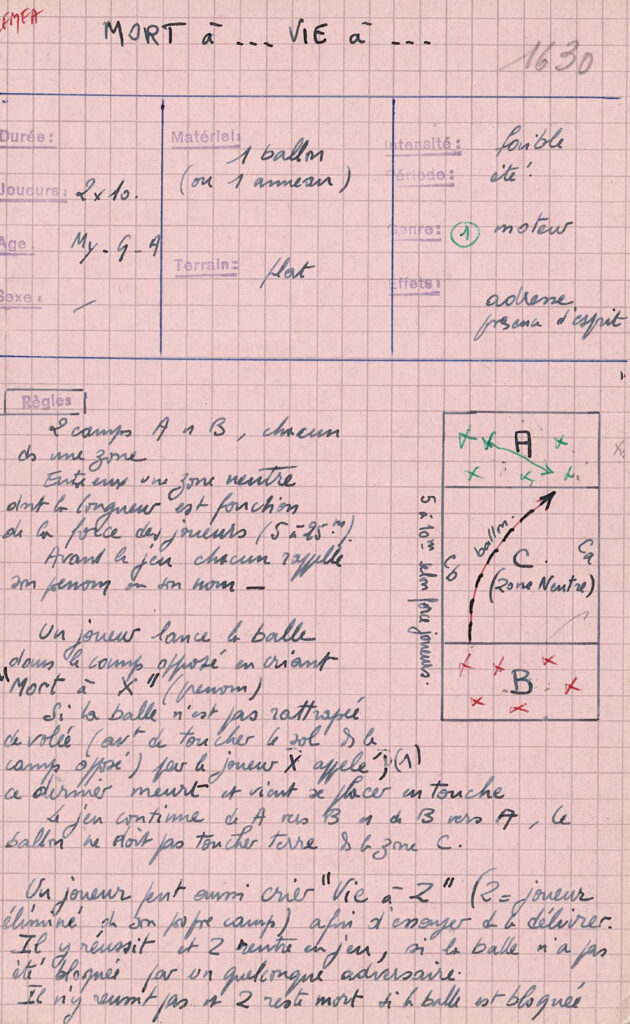 CEMEA
MORT à ... VIE à ...
1630
Durée:
Joueurs: 2x10.
Age: My - G - A
Sexe: /
Matériel:
1 ballon
(ou 1 anneau)
Terrain: plat
Intensité: faible
Période: été
Genre: ① moteur
Effets:
adresse
présence d'esprit
Règles
2 camps A et B, chacun
ds une zone
Entre eux une zone neutre
dont la longueur est fonction
de la force des joueurs (5 à 25m)
Avant le jeu chacun rappelle
son prénom ou son nom —
Un joueur lance la balle
dans le camp opposé en criant
"Mort à X" (prénom)
Si la balle n'est pas rattrapée
de volée (avt de toucher le sol ds le
camp opposé) par le joueur X appelé, (1)
ce dernier meurt et vient se placer en touche
Le jeu continue de A vers B et de B vers A, le
ballon ne doit pas toucher terre ds la zone C.
Un joueur peut aussi crier "Vie à Z" (Z = joueur
éliminé de son propre camp) afin d'essayer de le délivrer.
Il y réussit et Z rentre en jeu, si la balle n'a pas
été bloquée par un quelconque adversaire.
Il n'y réussit pas et Z reste mort si la balle est bloquée
A
ballon
C
(Zone Neutre)
Cb
Ca
B
5 à 10m selon force joueurs.